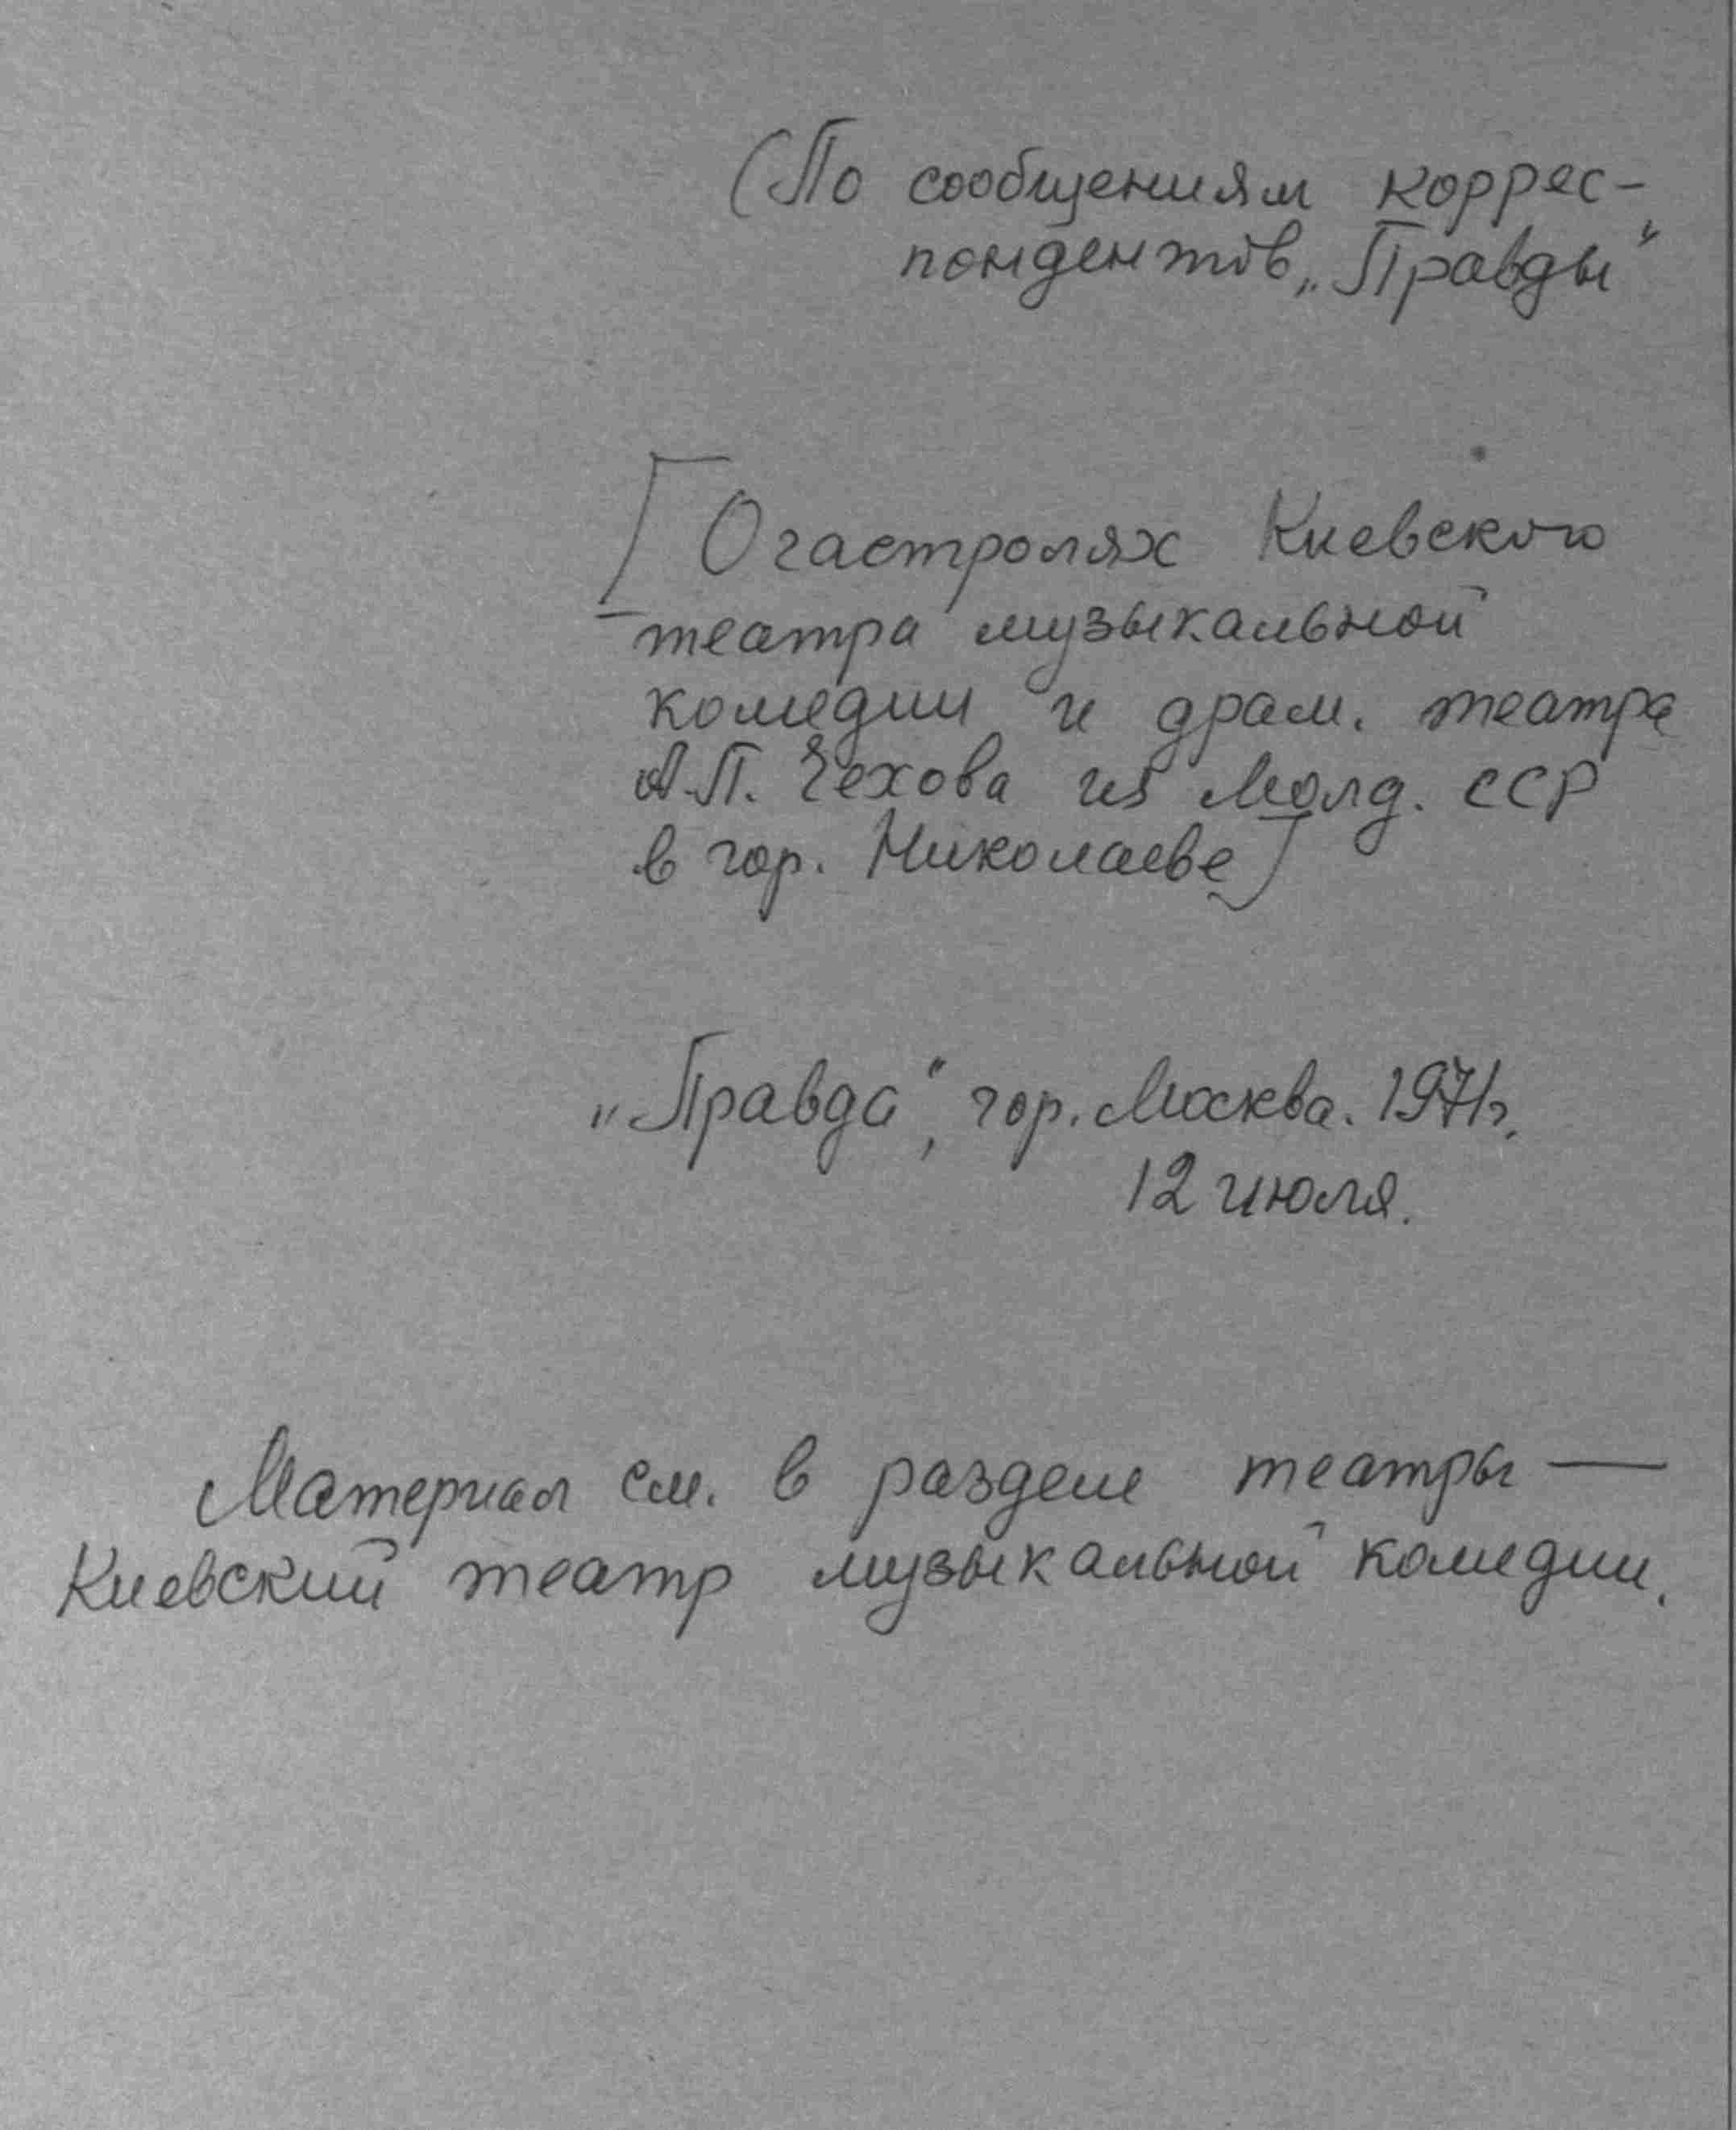 (По сообщениям коррес-
пондентов „Правды“
[О гастролях Киевского
театра музыкальной
комедии и драм. театра
А.П. Чехова из Молд. ССР
в гор. Николаеве]
„Правда“, гор. Москва. 1971г.
12 июля.
Материал см. в разделе театры —
Киевский театр музыкальной комедии.